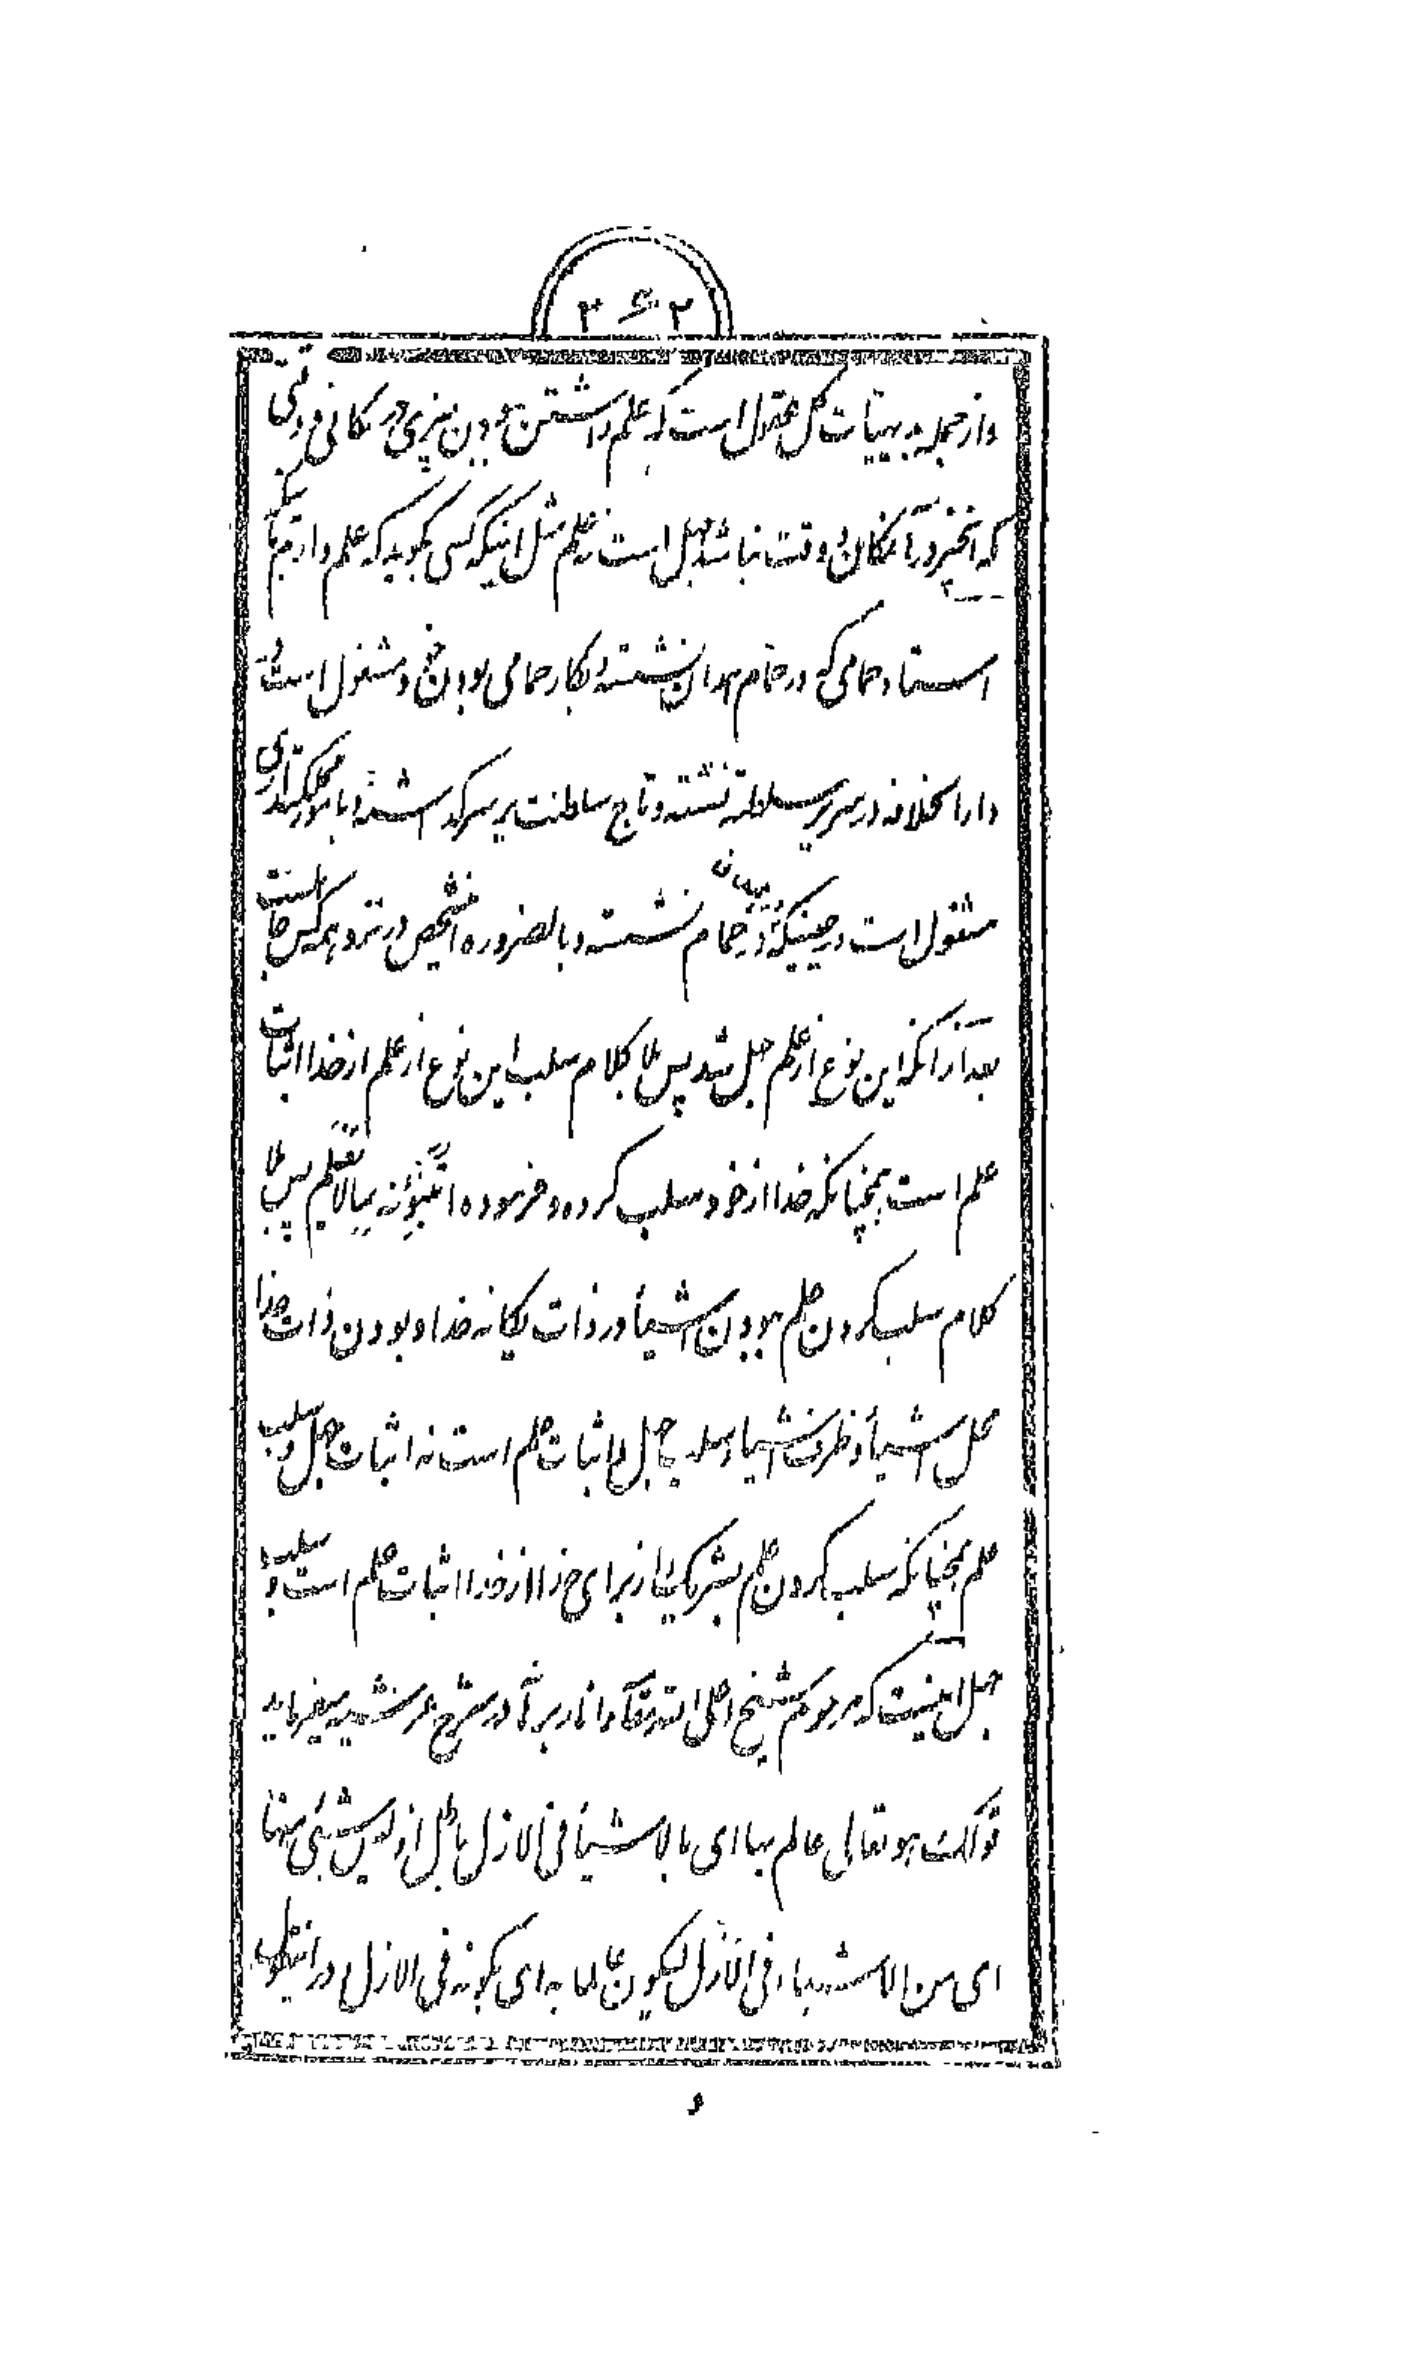 ۲۶۳
واز جمله بدیهیّات کل عقول است که علم داشتن ببودن چیزی در مکانی و وقتی
که آنچیز در آنمکان و وقت نباشد جهل است نه علم مثل اینکه کسی بگوید که علم دارم باینکه
استاد حمامی که در حمام همدان نشسته و بکار حمامی بودن خود مشغول است
دارالخلافه در سریر سلطنة نشسته و تاج سلطنت بر سر گذاشته و بامور مملکتداری
مشغول است در حینیکه در حمام همدان نشسته و بالضروره آنشخص در نزد همه کس جاهل است
بعد از آنکه این نوع از علم جهل شد پس لا کلام سلب این نوع از علم از خدا اثبات
علم است همچنانکه خدا از خود سلب کرده و فرموده اتنبّؤنه بما لا یعلم پس لا
کلام سلب کردن علم ببودن اشیأ در ذات یگانه خدا و بودن ذات خدا
محل اشیأ و ظرف اشیاء سلب جهل و اثبات علم است نه اثبات جهل و سلب
علم همچنانکه سلب کردن علم بشریک از برای خدا از خدا اثبات علم است و سلب
جهل اینست که مرحوم شیخ اعلی الله مقامه و انار برهانه در شرح عرشیه میفرماید
قولک هو تعالی عالم بها ای بالاشیأ فی الازل باطل اذ لیس شیئی منها
ای من الاشیاء فی الازل لیکون عالما به ای بکونه فی الازل و در اینمطلب
و